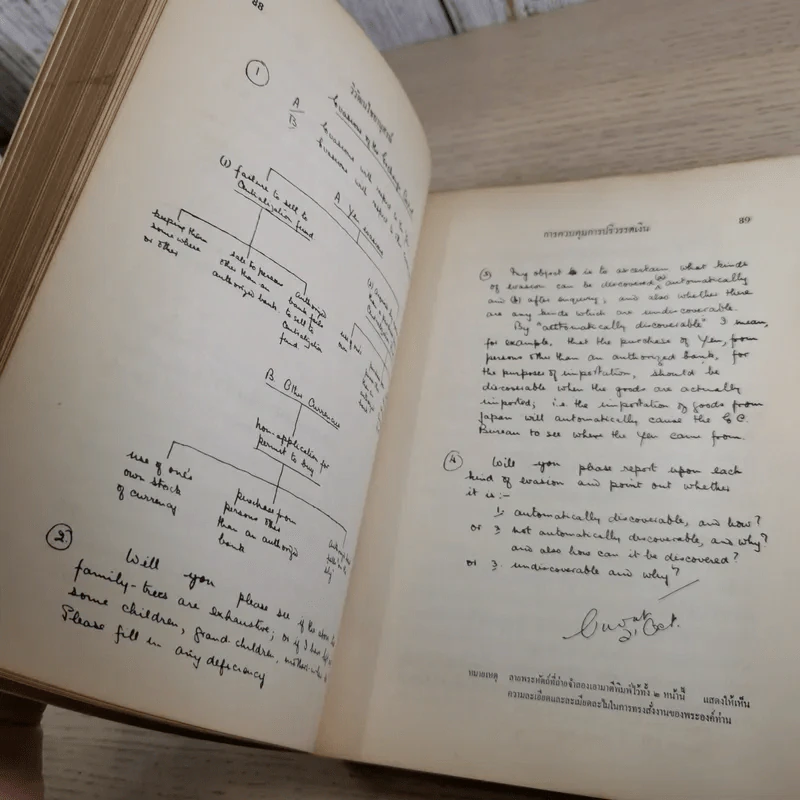 88
วิวัฒนไชยานุสรณ์
①
Evasions of the Exchange Control
A Evasions with respect to the
B Evasions with respect to
A Yen evasions
(1) failure to sell to
Centralization fund
keeping them
some where
or other
sale to persons
other than an
authorized bank
authorized
bank fails
to sell to
Centralization
fund
B. Other Currencies
non-application for
permit to buy
use of one's
own stock
of currency
purchase from
persons other
than an authorized
bank
②
Will you please see if the above
family-trees are exhaustive; or if I have left
some children, grand children,
Please fill in any deficiency
การควบคุมการปริวรรตเงิน
89
(3) My object is to ascertain what kinds
of evasion can be discovered (a) automatically
and (b) after enquiry; and also whether there
are any kinds which are undiscoverable.
By "automatically discoverable" I mean,
for example, that the purchase of Yen, from
persons other than an authorized bank, for
the purposes of importation, should be
discoverable when the goods are actually
imported; i.e the importation of goods from
Japan will automatically cause the E.C.
Bureau to see where the Yen came from.
④ Will you please report upon each
kind of evasion and point out whether
it is :-
1. automatically discoverable, and how?
or 2. not automatically discoverable, and why?
and also how can it be discovered?
or 3. undiscoverable and why?
หมายเหตุ ลายพระหัตถ์ที่ถ่ายจำลองเอามาตีพิมพ์ไว้ทั้ง ๒ หน้านี้ แสดงให้เห็น
ความละเอียดและละเมียดละไมในการทรงสั่งงานของพระองค์ท่าน